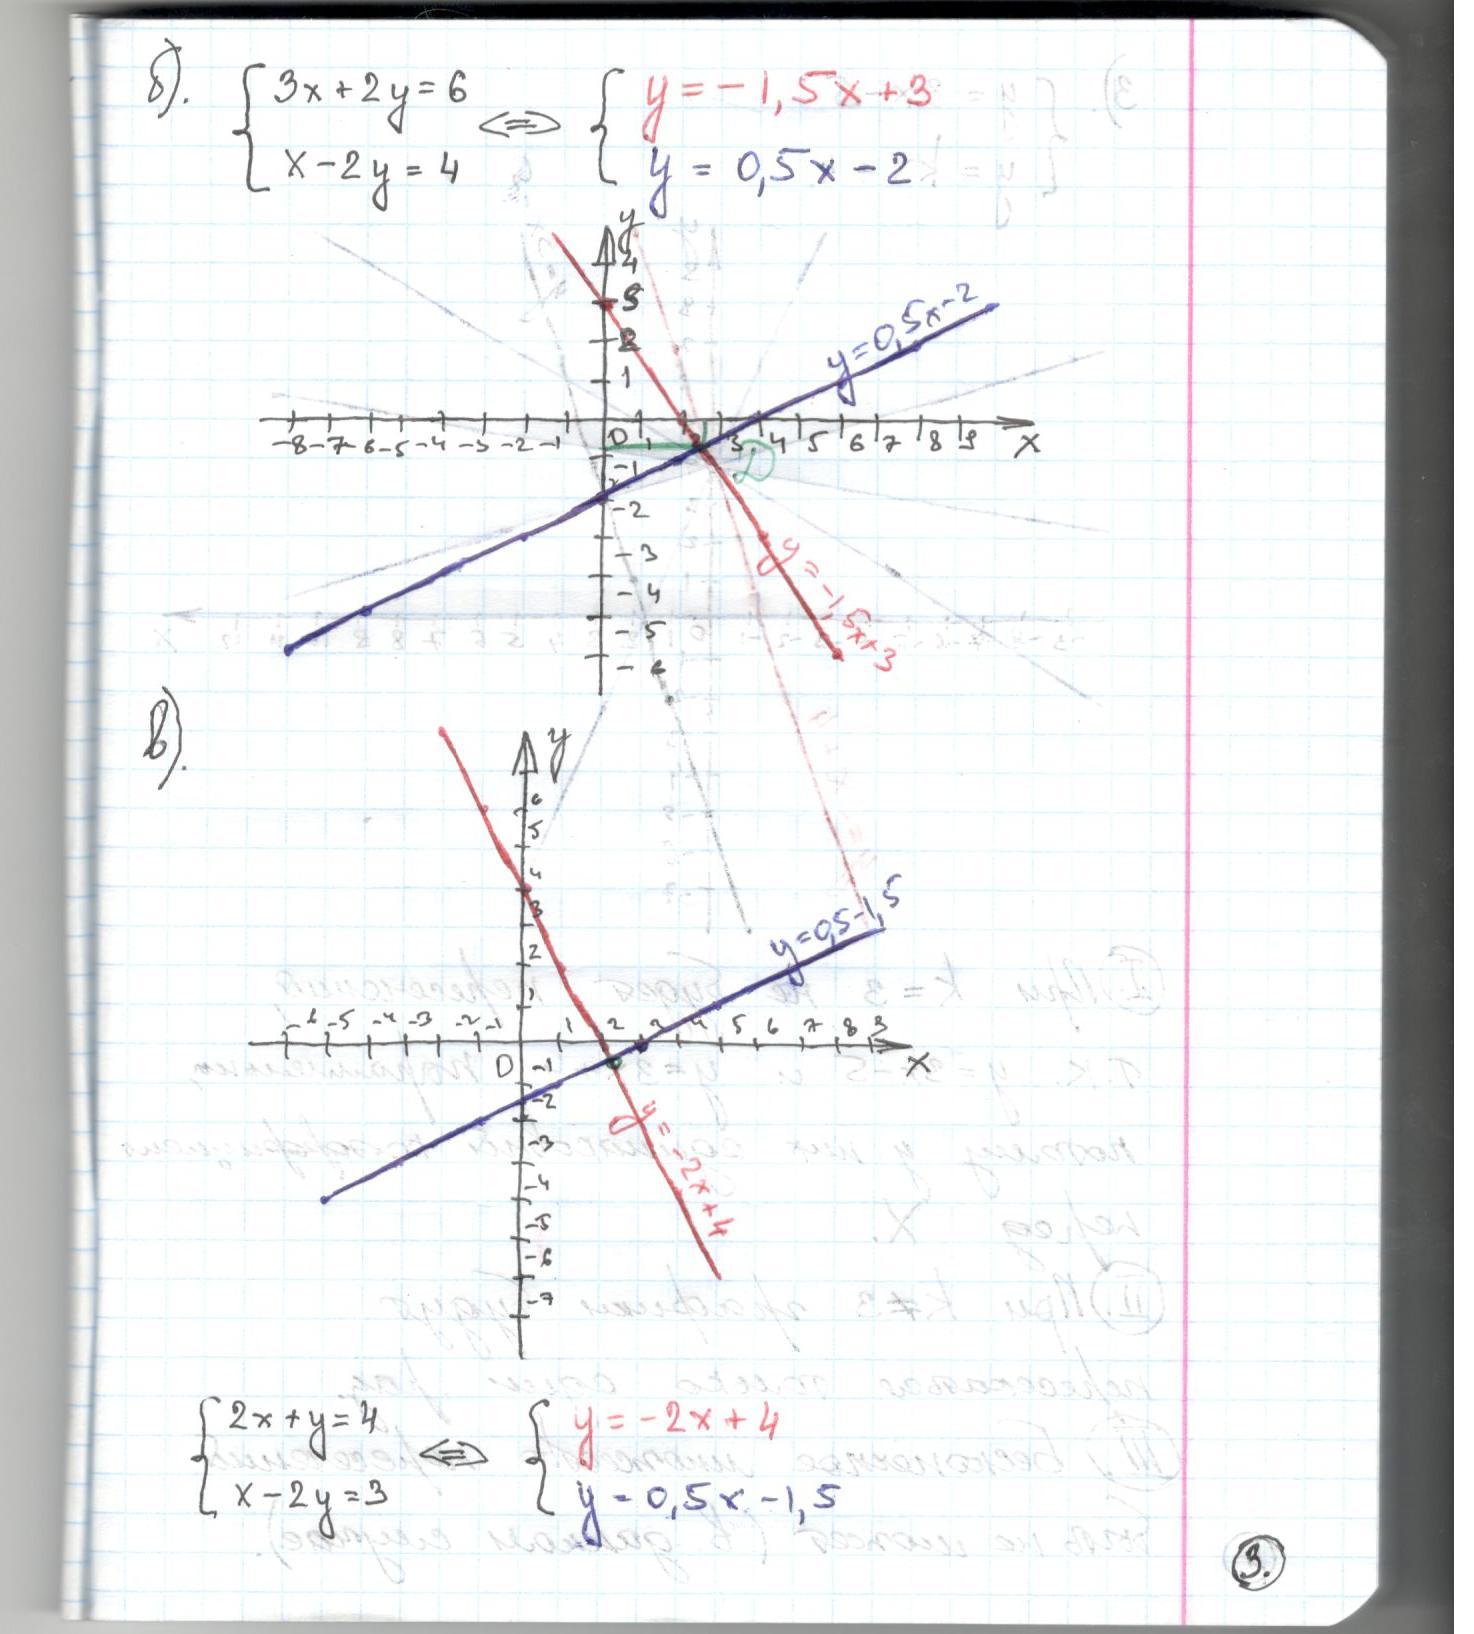 б).
{ 3x+2y=6 <=> { y=-1,5x+3
x-2y=4 y=0,5x-2
y
4
3
2
1
-8 -7 -6 -5 -4 -3 -2 -1 0 1 2 3 4 5 6 7 8 9 x
-1
-2
-3
-4
-5
-6
D
y=0,5x-2
y=-1,5x+3
в).
y
6
5
4
3
2
1
-6 -5 -4 -3 -2 -1 0 1 2 3 4 5 6 7 8 9 x
-1
-2
-3
-4
-5
-6
-7
y=0,5-1,5
y=-2x+4
{ 2x+y=4 <=> { y=-2x+4
x-2y=3 y=0,5x-1,5
3.